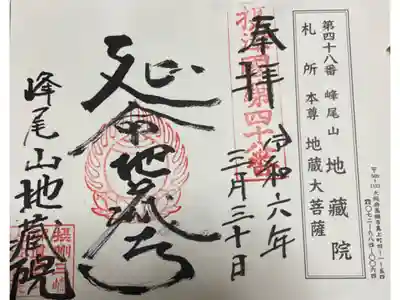 第四十八番 峰尾山 地蔵院
札所本尊 地蔵大菩薩
大阪府高槻市真上町
奉拝
第四十八番
令和六年
月三十日
延命地蔵尊
峰尾山地蔵院